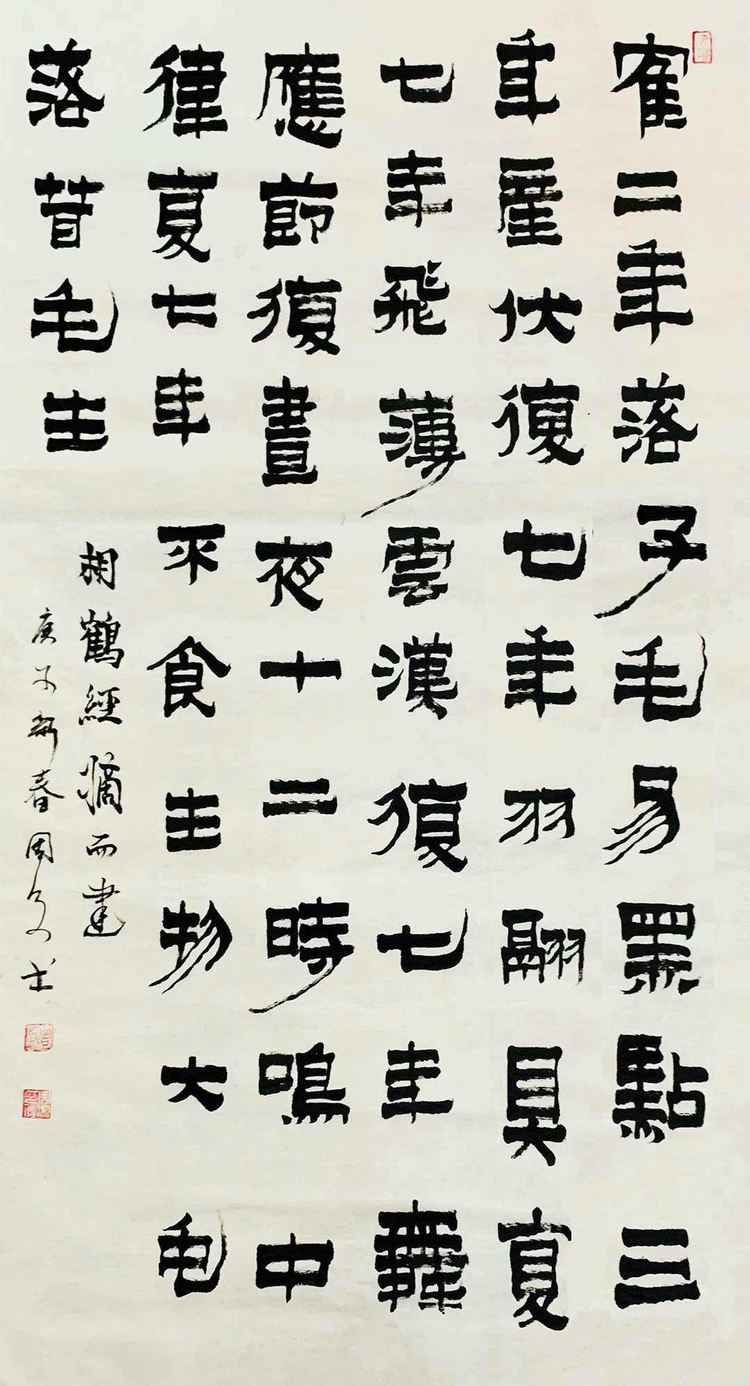 隺二年落子毛易黑點三
年產伏復七年羽翮具复
七年飛薄雲漢復七年舞
應節復晝夜十二時鳴中
律复七年不食生物大毛
落茸毛生
相鶴經摘而書
庚子新春周书